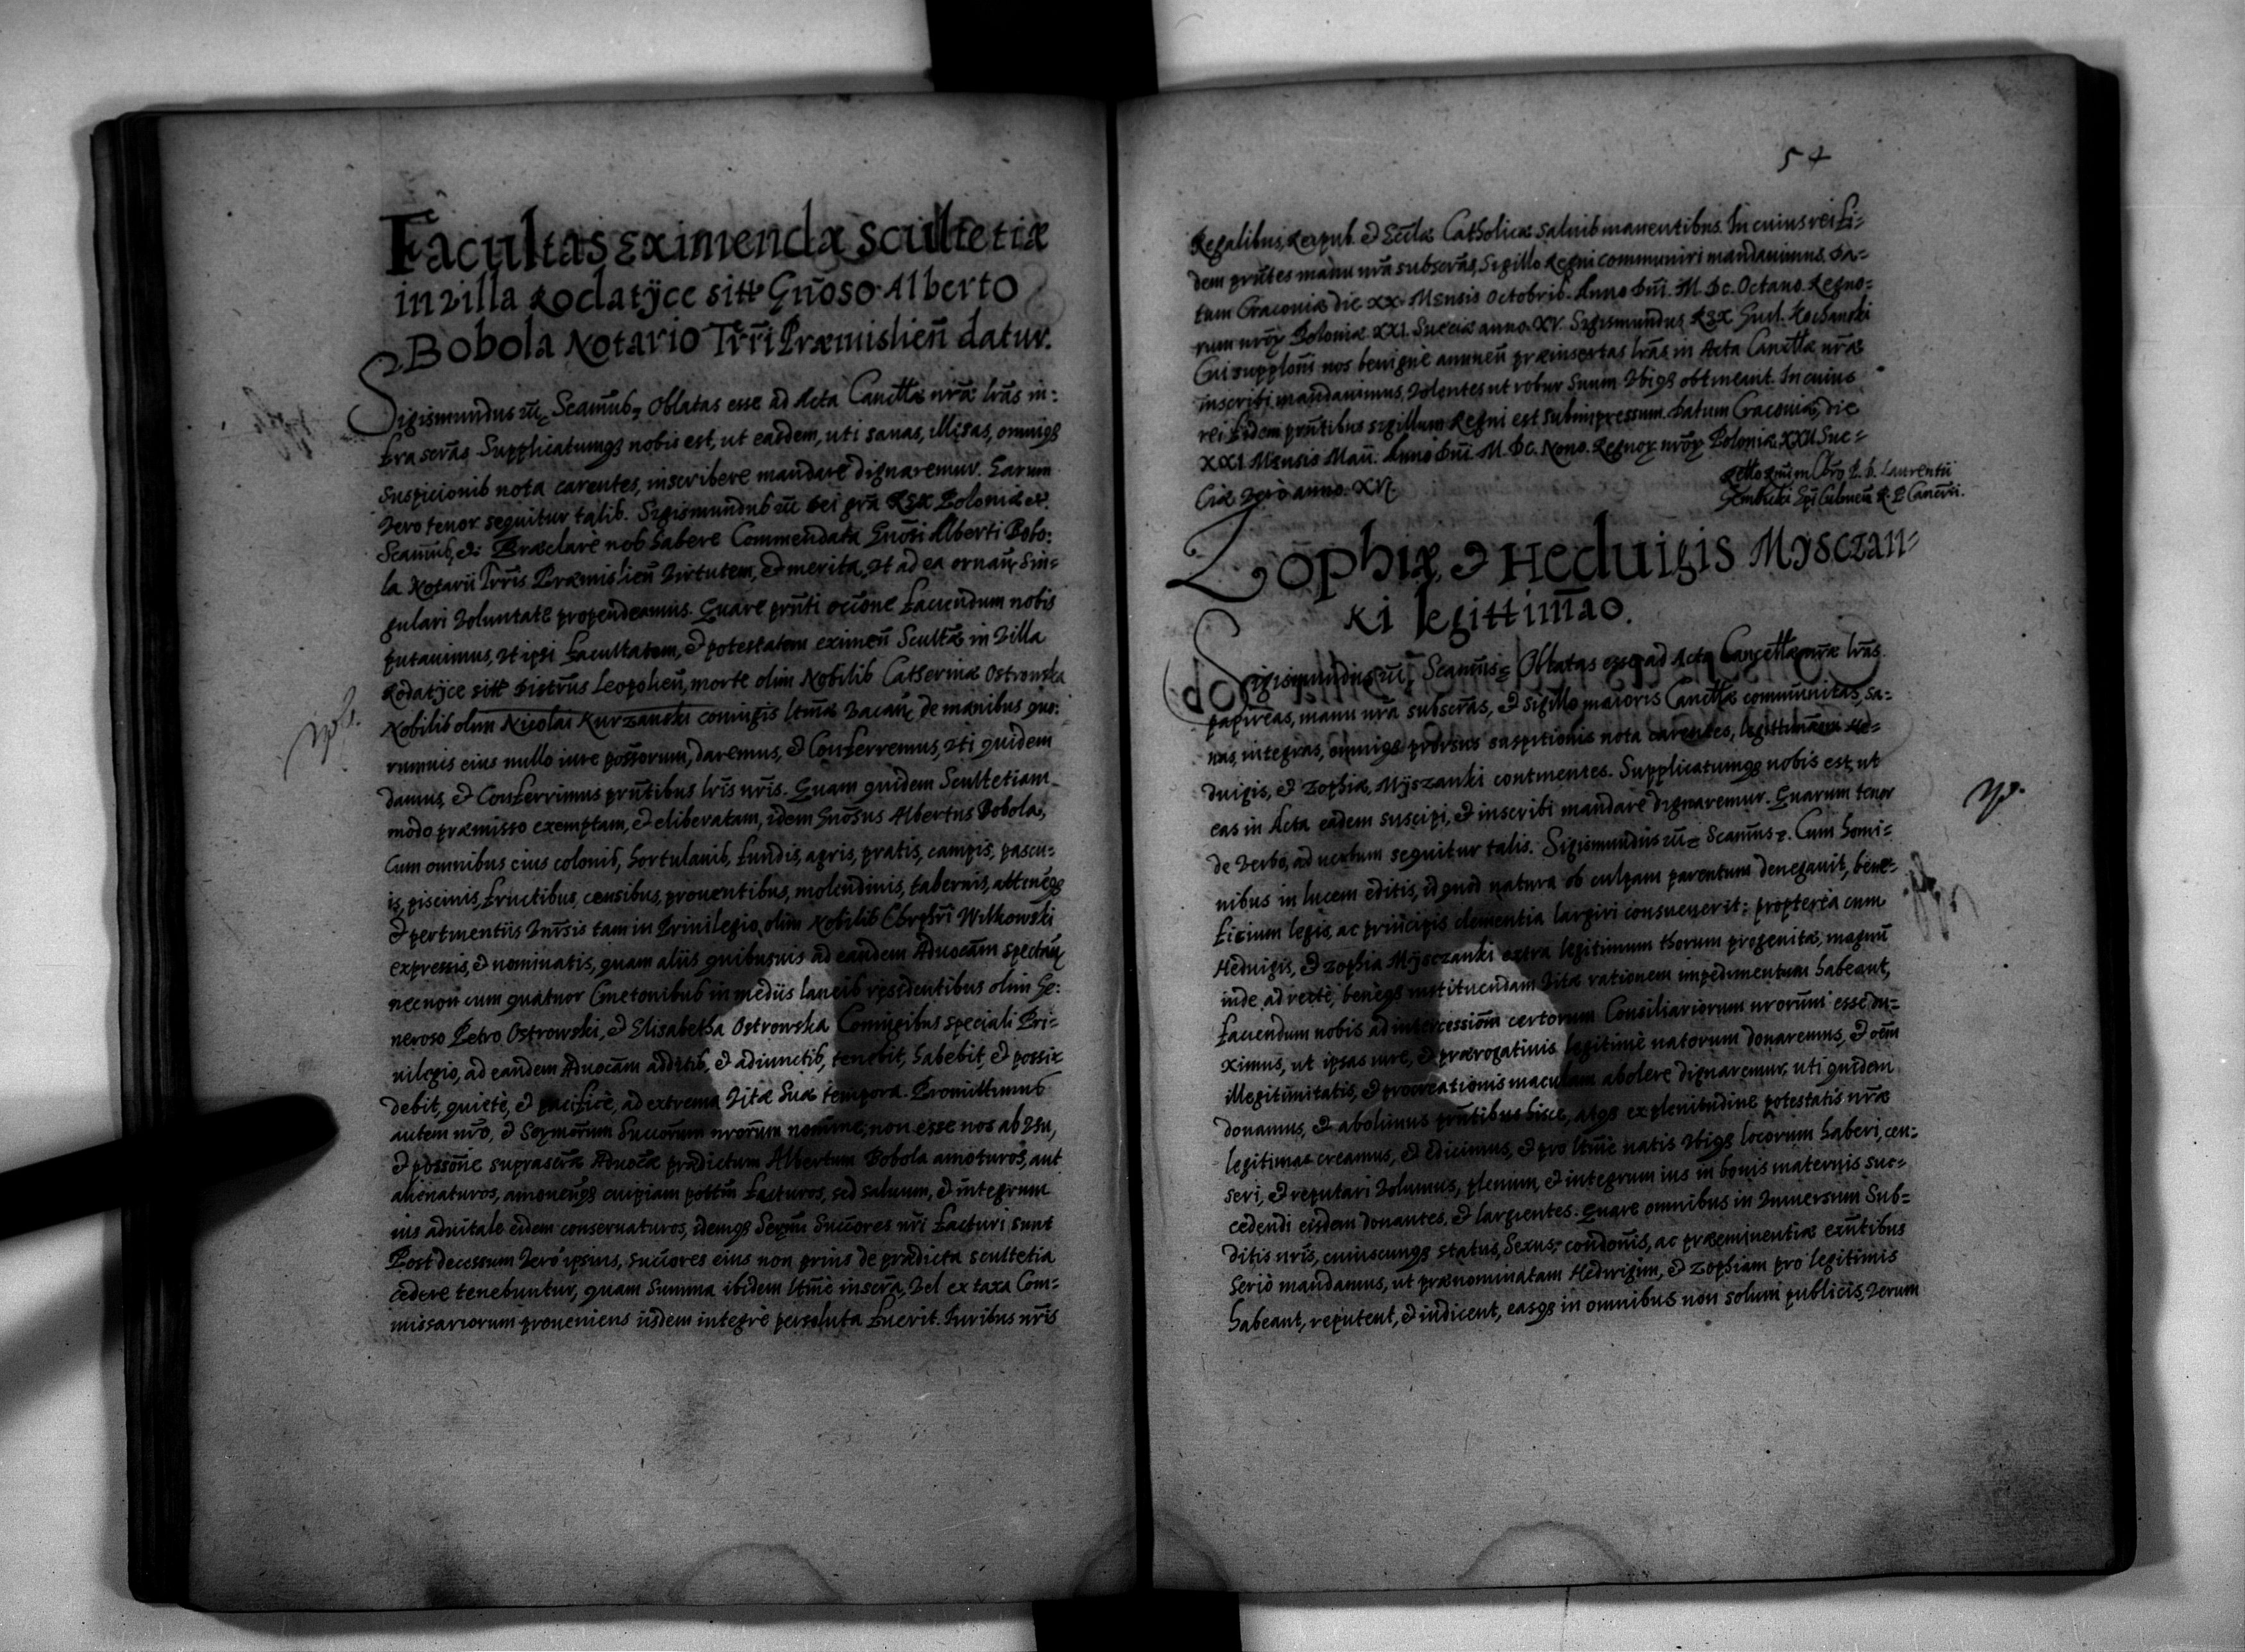 Facultas eximendæ scultetiæ
in villa Rodatÿce sitt Gnoso Alberto
Bobola Notario Trr̄i Præmislien̄ datur.
Sigismundus IIIs̄ Scam̄us, Oblatas esse ad Acta Cancellæ nr̄æ lr̄as in=
fra scr̄as Supplicatumqз nobis est, ut easdem, uti sanas, illęsas, omniqз
suspicionis nota carentes, inscribere mandare dignaremur. Earum
vero tenor sequitur talis. Sigismundus III Dei gr̄a Rex Poloniæ etc.
Scam̄us, etc. Præclare nob habere Commendata Gnōsi Alberti Bobo=
la Notarii Trr̄is Præmislien̄ virtutem, et merita, ut ad ea ornan̄ sin=
gulari voluntate propendeamus. Quare pn̄ti occ̄one faciendum nobis
putauimus, ut ipsi facultatem, et potestatem eximen̄ Scultæ in villa
Rodatÿce sitt Distrūs Leopolien̄, morte olim Nobilis Catherinæ Ostrowska
Nobilis olim Nicolai Kurzanski coniugis ltm̄æ vacan̄, de manibus quo=
rumuis eius nullo iure poss̄orum, daremus, et Conferremus, uti quidem
damus, et Conferrimus pn̄tibus lr̄is nr̄is. Quam quidem Scultetiam
modo præmisso exemptam, et eliberatam, idem Gnōsus Albertus Bobola,
Cum omnibus eius colonis, hortulanis, fundis, agris, pratis, campis, pascu=
is, piscinis, fructibus, censibus, prouentibus, molendinis, tabernis, attinēqз
et pertinentiis vnīsis tam in Priuilegio olim Nobilis Chrphri Witkowski
expressis, et nominatis, quam aliis quibusuis ad eandem Aduocām spectan̄
necnon cum quatuor Cmetonibus in mediis laneis residentibus olim Ge=
neroso Petro Ostrowski, et Elisabetha Ostrowska Coniugibus speciali Pri=
uilegio, ad eandem Aduocām additis, et adiunctis, tenebit, habebit, et possi=
debit, quietè, et pacificè, ad extrema vitæ suæ tempora. Promittimus
autem nr̄o, et Serm̄orum Succ̄orum nr̄orum nomine, non esse nos ab usu,
et poss̄one suprascr̄æ Aduocæ prædictum Albertum Bobola amoturos, aut
alienaturos, amouen̄qз cuipiam pottm facturos, sed saluum, et integrum
ius aduitale eidem conseruaturos, idemqз Serm̄i Succ̄ores nr̄i facturi sunt
Post decessum vero ipsius, succ̄ores eius non prius de prædicta scultetia
cedere tenebuntur, quam Summa ibidem ltm̄e inscr̄a, vel ex taxa Com=
missariorum proueniens iisdem integrè persoluta fuerit. Iuribus nr̄is
54
Regalibus, Reipub. et Eccl̄æ Catholicæ saluis manentibus. In cuius rei fi=
dem pn̄tes manu nr̄a subscr̄as, Sigillo Regni communiri mandauimus. Da=
tum Cracouiæ die XX. Mensis Octobris. Anno Dn̄i. M. Dc. Octauo. Regno=
rum nr̄or Poloniæ XXI. Sueciæ anno. XV. Sigismundus Rex Gusl. Kochanski
Cui supplōni nos benignè annuen̄ præinsertas lr̄as in Acta Cancellæ nr̄æ
inscribi mandauimus, volentes ut robur suum vbiqз obtineant. In cuius
rei fidem pn̄tibus sigillum Regni est subimpressum. Datum Cracouiæ, die
XXI Mensis Maii. Anno Dn̄i. M. Dc. Nono. Regnor nr̄or Poloniæ XXII Sue=
ciæ verò anno. XVI.
Rello Rnum Chro P. D. Laurentii
Gembicki Epi Culmen̄ R. P. Cancrii.
Zophiæ, et Heduigis Mÿsczan=
ki legittimāo.
Sigismundus IIIs̄ Scam̄us Oblatas esse ad Acta Cancellæ nr̄æ lr̄as
papireas, manu nr̄a subscr̄as, et sigillo maioris Cancellæ communitas, sa=
nas, integras, omniqз prorsus suspitionis nota carentes, legittimām He=
duigis, et Zophiæ, Mÿszanki continentes. Supplicatumqз nobis est, ut
eas in Acta eadem suscipi, et inscribi mandare dignaremur. Quarum tenor
de verbo, ad uerbum sequitur talis. Sigismundus III Scam̄us. Cum homi=
nibus in lucem editis, id quod natura ob culpam parentum denegauit, bene=
ficium legis, ac principis clementia largiri consueuerit; proptereà cum
Heduigis, et Zophia Mÿsczanki extra legitimum thorum progenitæ, magnū
inde ad rectè, beneqз instituendam vitæ rationem impedimentum habeant,
faciendum nobis ad intercessiōm certorum Consiliariorum nr̄orum esse du=
ximus, ut ipsas iure, et prærogatiuis legitimè natorum donaremus, et oēm
illegitimitatis, et procreationis maculam abolere dignaremur, uti quidem
donamus, et abolimus pn̄tibus hisce, atqз ex plenitudine potestatis nr̄æ
legitimas creamus, et edicimus, et pro ltm̄è natis vbiqз locorum haberi, cen=
seri, et reputari volumus, plenum, et integrum ius in bonis maternis suc=
cedendi eisdem donantes, et largientes. Quare omnibus in vniuersum sub=
ditis nr̄is, cuiuscunqз status, Sexus, condōnis, ac præeminentiæ exn̄tibus
seriò mandamus, ut prænominatam Heduigim, et Zophiam pro legitimis
habeant, reputent, et iudicent, easqз in omnibus non solum publicis, verum